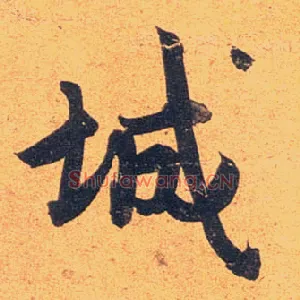 城
Shufawang.CN